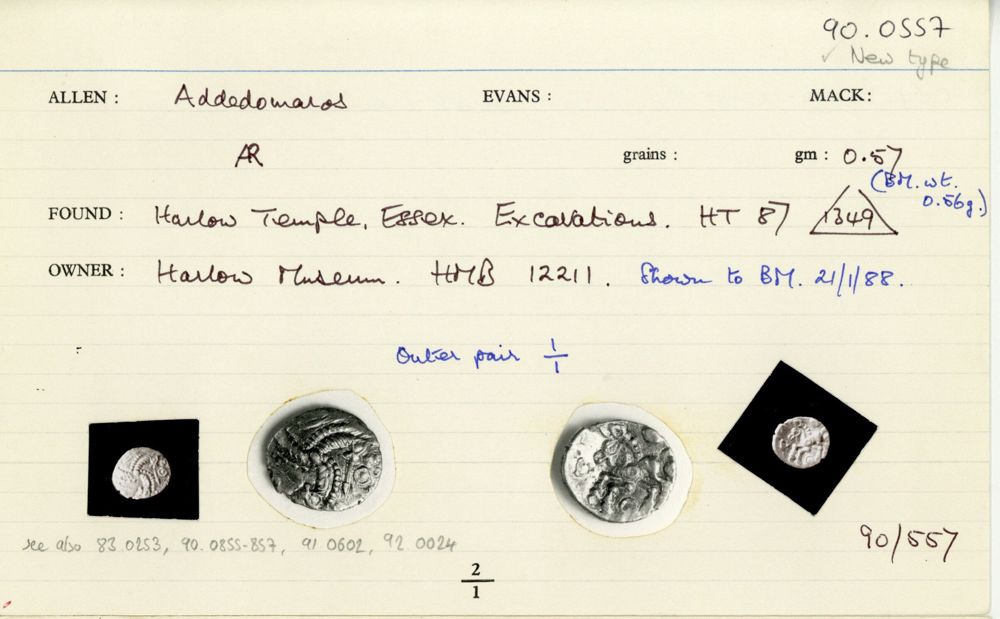 90.0557
✓ New type
ALLEN : Addedomaros EVANS : MACK:
AR grains : gm : 0.57
(BM. wt. 0.56g.)
FOUND : Harlow Temple, Essex. Excavations. HT 87 1349
OWNER : Harlow Museum. HMB 12211. Shown to BM. 21/1/88.
Outer pair 1/1
see also 83.0253, 90.0855-857, 91.0602, 92.0024
90/557
2/1